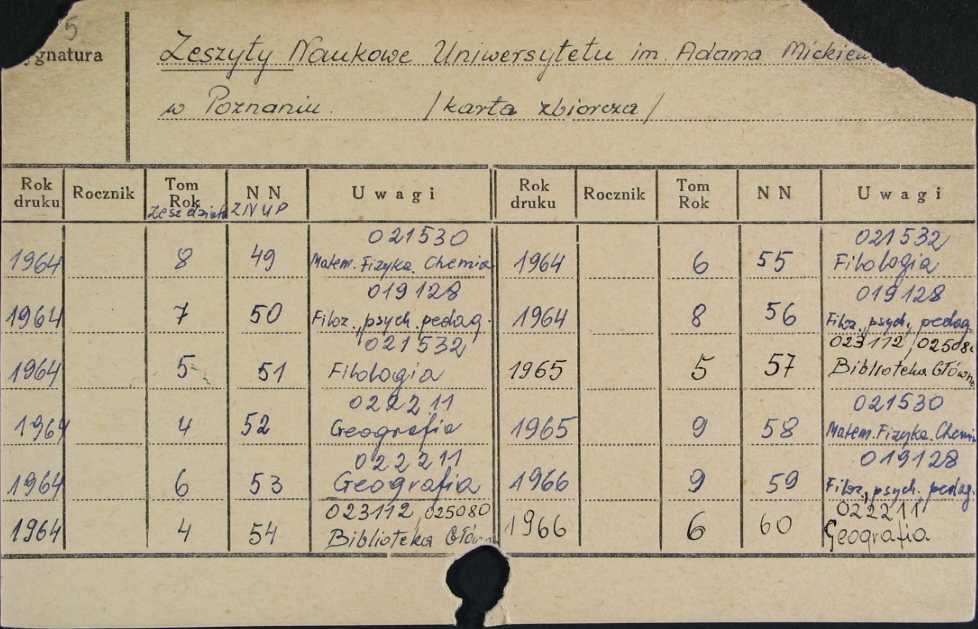 5
ygnatura
Zeszyty Naukowe Uniwersytetu im. Adama Mickiew
w Poznaniu. /karta zbiorcza/
Rok druku Rocznik Tom Rok N N Uwagi Rok druku Rocznik Tom Rok N N Uwagi
zesz działa ZNUP
021530 021532
1964 8 49 Matem. Fizyka. Chemia 1964 6 55 Filologia
019128 019128
1964 7 50 Filoz., psych. pedag. 1964 8 56 Filoz., psych., pedag.
021532 023112, 02508
1964 5 51 Filologia 1965 5 57 Biblioteka Główna
022211 021530
1964 4 52 Geografia 1965 9 58 Matem. Fizyka. Chemi
022211 019128
1964 6 53 Geografia 1966 9 59 Filoz., psych., pedag.
023112, 025080 022211
1964 4 54 Biblioteka Główn 1966 6 60 Geografia